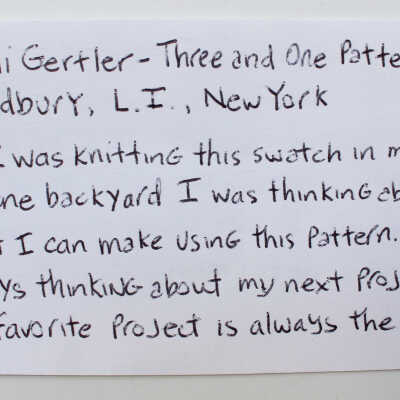 i Gertler - Three and One Patte
dbury, L.I., New York
I was knitting this swatch in m
ne backyard I was thinking ab
I can make using this pattern.
ys thinking about my next Proj
favorite Project is always the